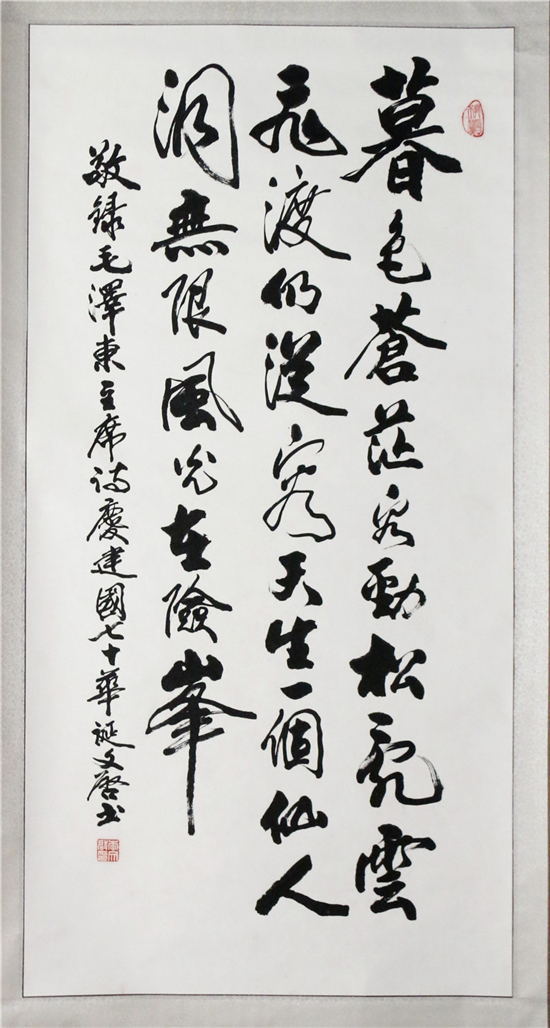 暮色蒼茫看勁松亂雲
飛渡仍從容天生一個仙人
洞無限風光在險峯
敬録毛澤東主席詩慶建國七十華誕文啓書